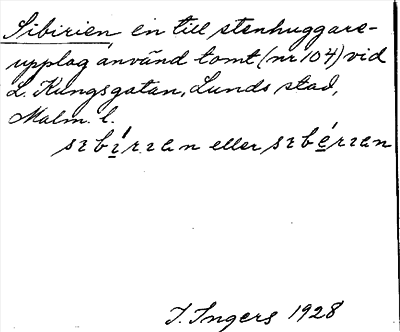 Sibirien, en till stenhuggare-
upplag använd tomt (nr 104) vid
L. Kungsgatan, Lunds stad,
Malm. l.
sɪbí̱rɪan eller sɪbé̱rɪan
I. Ingers 1928